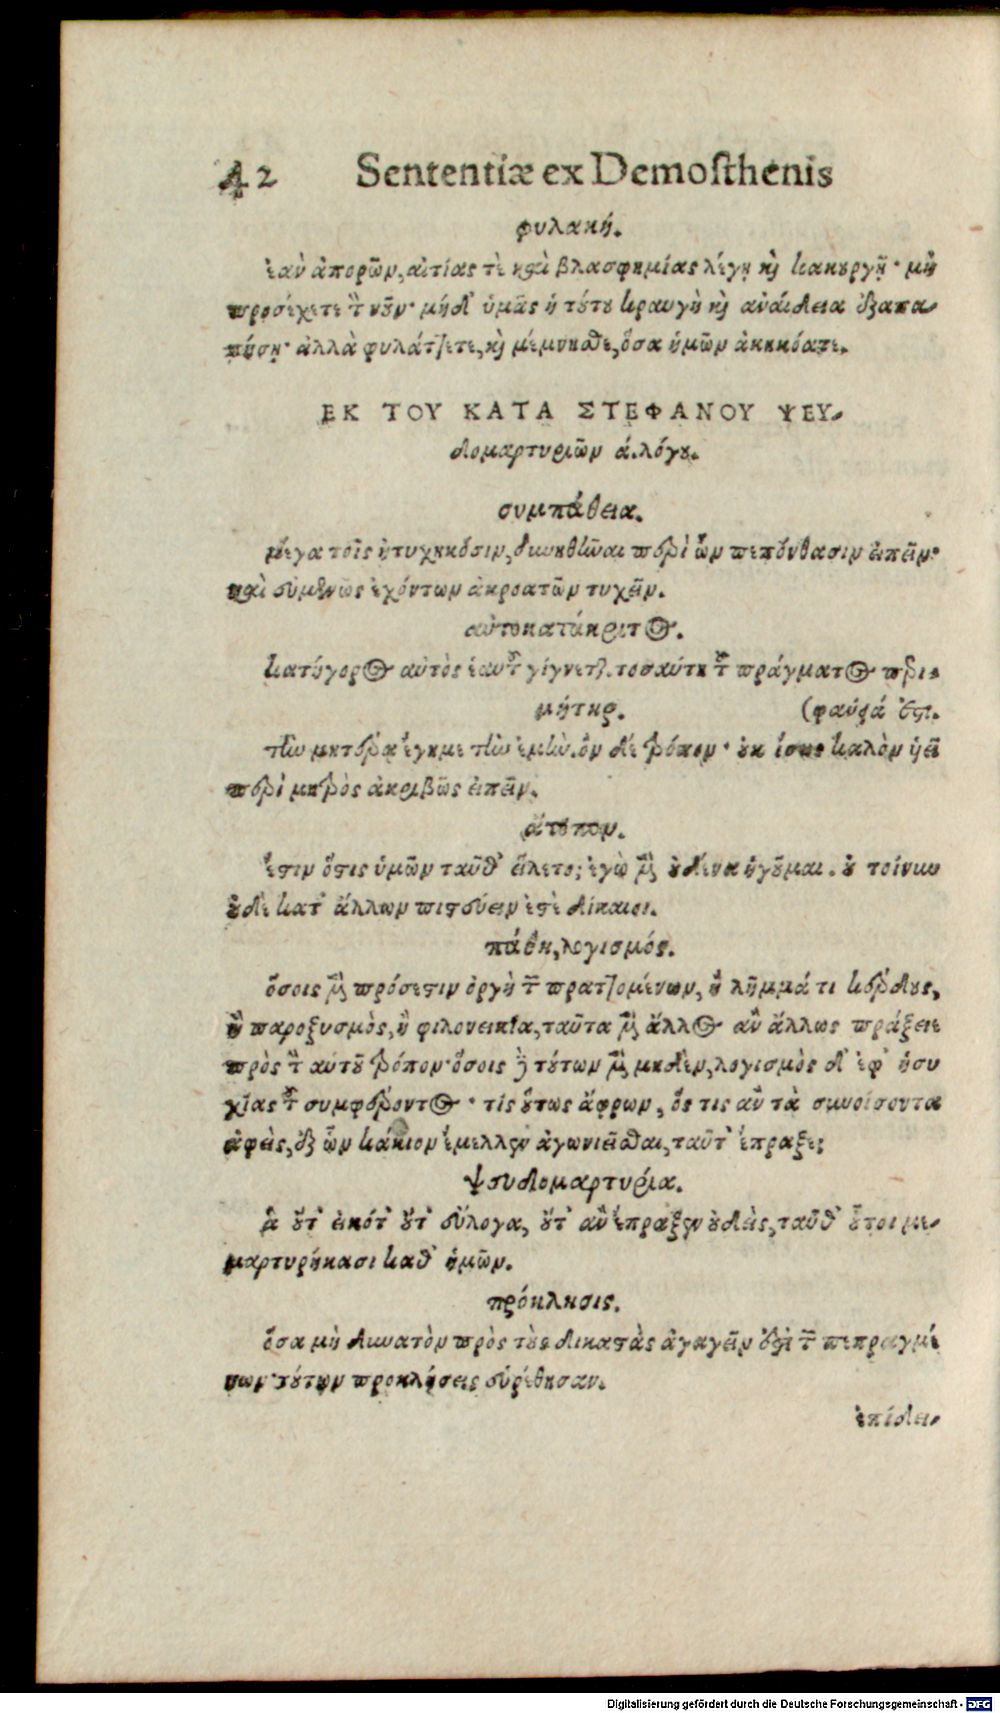 42 Sententiæ ex Demosthenis
φυλακή.
ἐὰν ἀπορῶν, αἰτίας τὲ καὶ βλασφημίας λέγῃ κὶ κακουργῇ· μὴ
προσέχετε τ̃ νοῦν· μήδ᾽ ὑμᾶς ἡ τούτου κραυγὴ κὶ ἀναίδεια ἐξαπα-
τήσῃ· ἀλλὰ φυλάττετε, κὶ μέμνησθε, ὅσα ἡμῶν ἀκηκόατε.
ΕΚ ΤΟΥ ΚΑΤΑ ΣΤΕΦΑΝΟΥ ΨΕΥ-
δομαρτυριῶν ά. λόγου.
συμπάθεια.
μέγα τοῖς ἠτυχηκόσιν, δυνηθῆναι περὶ ὧν πεπόνθασιν εἰπεῖν·
καὶ εὐμενῶς ἐχόντων ἀκροατῶν τυχεῖν.
αὐτοκατάκριτος.
κατήγορος αὐτὸς ἑαυτοῦ γίγνεται. τοσαύτη τοῦ πράγματος περι-
μήτηρ. (φαύεια ἐστι.
τὴν μητέρα ἔγημε τὴν ἐμὴν. ὃν δὲ τρόπον· οὐκ ἴσως καλὸν υἱεῖ
περὶ μητρὸς ἀκριβῶς εἰπεῖν.
ἄτοπον.
ἔστιν ὅστις ὑμῶν ταῦθ᾽ εἵλετο; ἐγὼ μὲν οὐδένα ἡγοῦμαι. οὐ τοίνυν
οὐδὲ κατ᾽ ἄλλων πιστεύειν ἐστὲ δίκαιοι.
πάθη, λογισμός.
ὅσοις μὲν πρόσεστιν ὀργὴ τῶν πραττομένων, ἢ λῆμμά τι κέρδους,
ἢ παροξυσμὸς, ἢ φιλονεικία, ταῦτα μὲν ἄλλος ἂν ἄλλως πράξειε
πρὸς τ̀ αὑτοῦ τρόπον· ὅσοις δὲ τούτων μὲν μηδὲν, λογισμὸς δ᾽ ἐφ᾽ ἡσυ
χίας τοῦ συμφέροντος· τίς οὕτως ἄφρων, ὅς τις ἂν τὰ συνοίσοντα
ἀφεὶς, ἐξ ὧν κάκιον ἔμελλεν ἀγωνιεῖσθαι, ταῦτ᾽ ἔπραξε;
ψευδομαρτυρία.
ἃ οὔτ᾽ εἰκότ᾽ οὔτ᾽ εὔλογα, οὔτ᾽ ἂν ἔπραξεν οὐδεὶς, ταῦθ᾽ οὗτοι με-
μαρτυρήκασι καθ᾽ ἡμῶν.
πρόκλησις.
ὅσα μὴ δυνατὸν πρὸς τοὺς δικαστὰς ἀγαγεῖν ἐστὶ τῶν πεπραγμέ
νων· τούτων προκλήσεις εὑρέθησαν.
ἐπίδει-
Digitalisierung gefördert durch die Deutsche Forschungsgemeinschaft - DFG